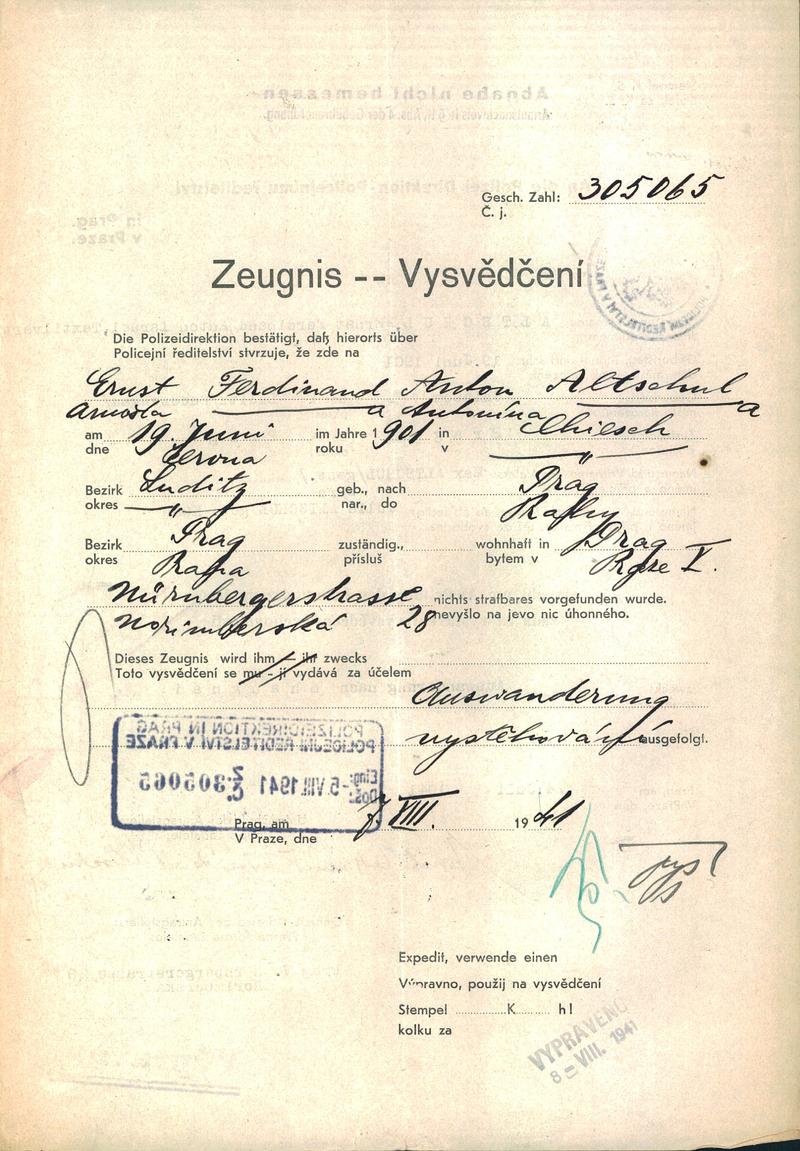 Gesch. Zahl: 305065
Č. j.
Zeugnis -- Vysvědčení
Die Polizeidirektion bestätigt, daß hierorts über
Policejní ředitelství stvrzuje, že zde na
Ernst Ferdinand Anton Altschul
Arnošta a Antonína a
am 19 Juni im Jahre 1901 in Chiesch
dne června roku v "
Bezirk Luditz geb., nach Prag
okres " nar., do Prahy
Bezirk Prag zuständig., wohnhaft in Prag
okres Praha přísluš bytem v Praze V.
Nürnbergerstrasse nichts strafbares vorgefunden wurde.
Norimberská 28 nevyšlo na jevo nic úhonného.
Dieses Zeugnis wird ihm - ihr zwecks
Toto vysvědčení se mu - jí vydává za účelem
Auswanderung
vystěhování ausgefolgt.
POLIZEIDIREKTION IN PRAG
POLICEJNÍ ŘEDITELSTVÍ V PRAZE
Eing.: -5. VIII. 1941 Z. 305065
Došl.: Č.
Prag, am 7. VIII. 1941
V Praze, dne
Expedit, verwende einen
Výpravno, použij na vysvědčení
Stempel K h!
kolku za
VYPRAVENO
8 - VIII. 1941